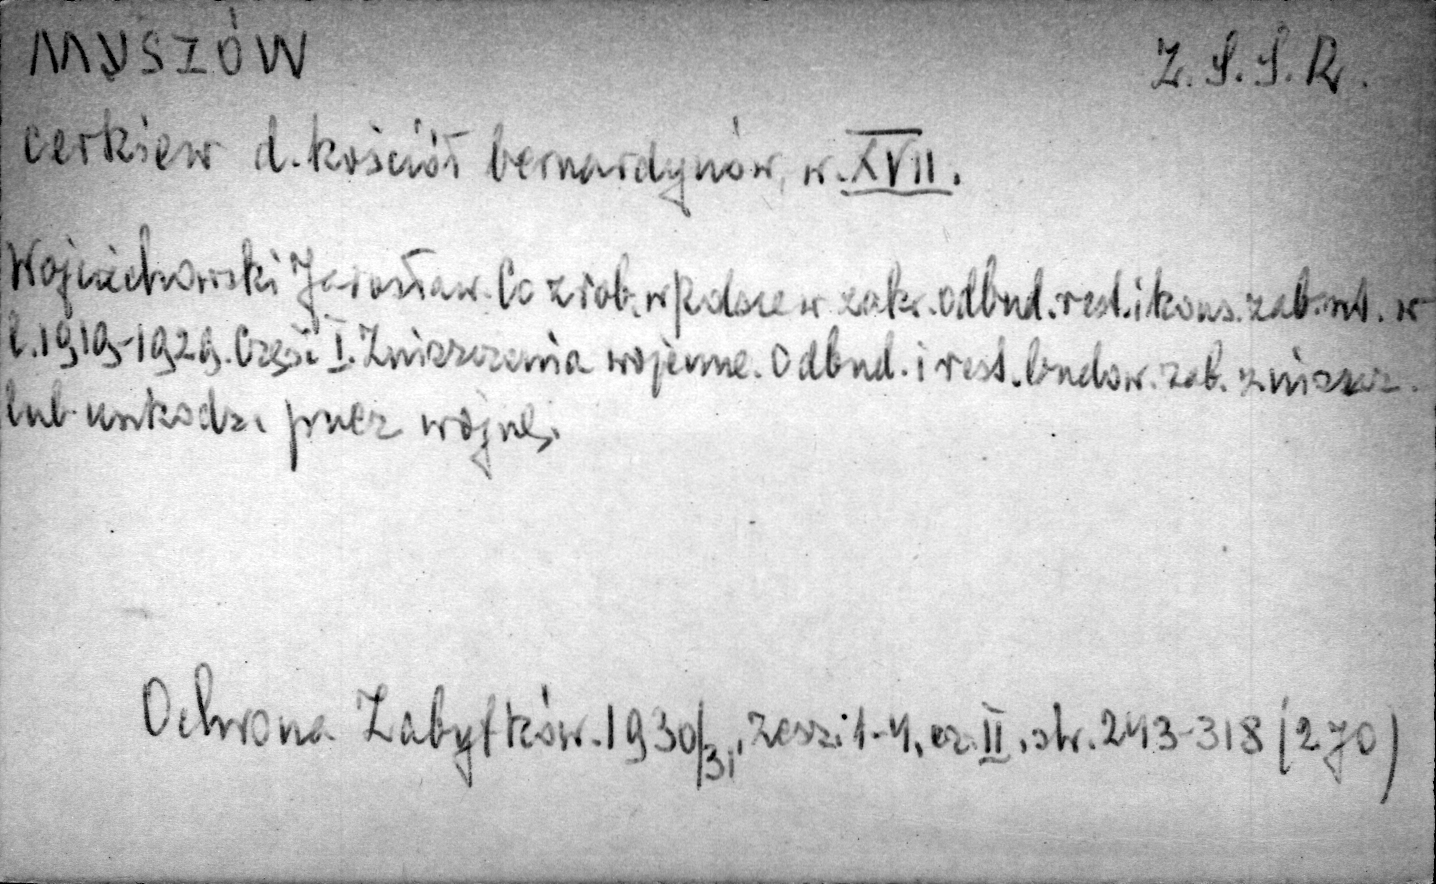 MYSZÓW Z.S.S.R.
cerkiew d. kościół bernardynów, w. XVII.
Wojciechowski Jarosław. Co zrob. w Polsce w zakr. odbud. rest. i kons. zab. szt. w
l. 1919-1929. Część I. Zniszczenia wojenne. Odbud. i rest. budow. zab. zniszcz.
lub uszkodz. przez wojnę.
Ochrona Zabytków. 1930/31, zesz. 1-4, cz. II, str. 243-318 (270)